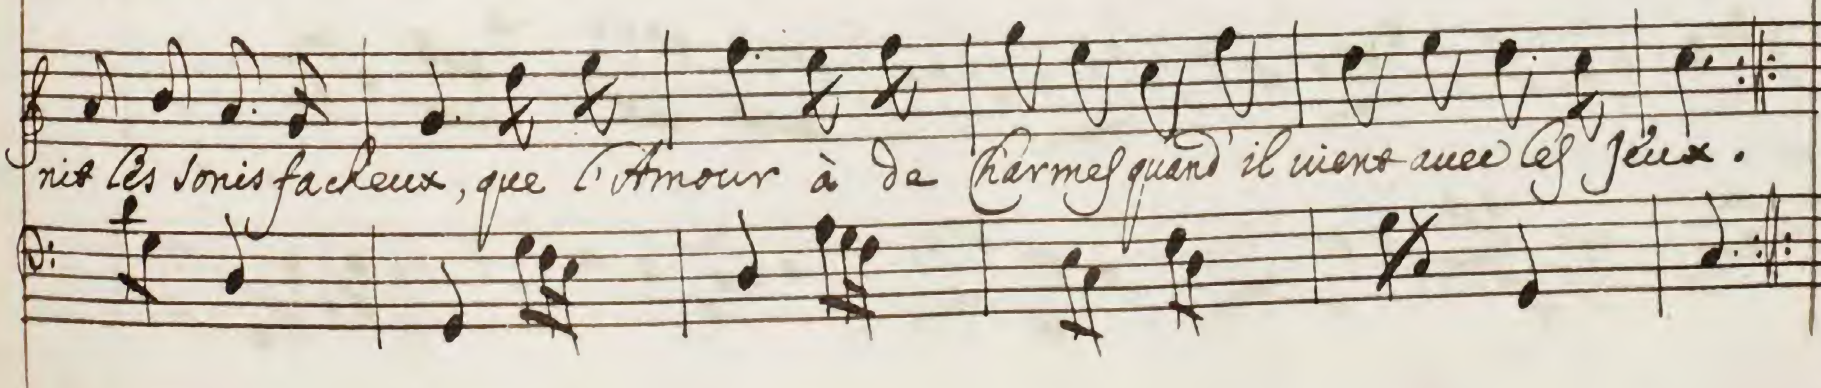 nit les sonis facheux, que l'Amour à de Charmes quand il vient avec les Jeux.